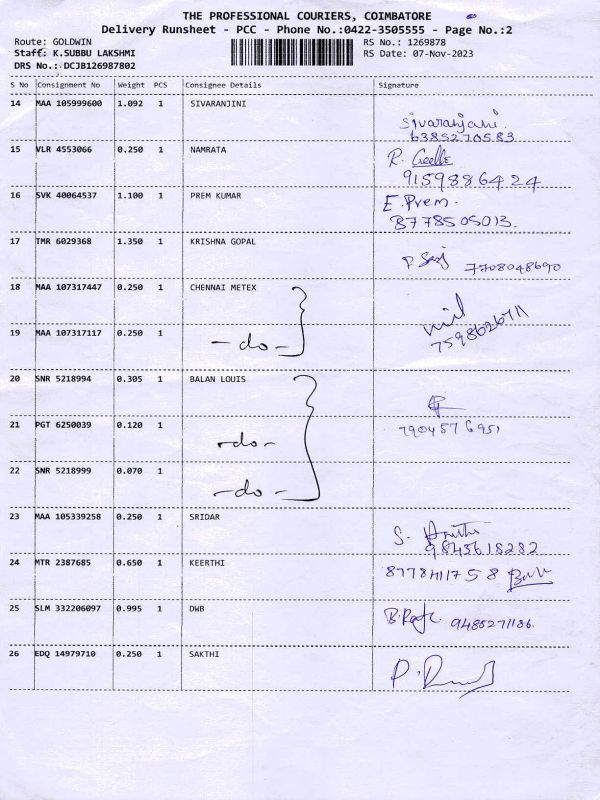 THE PROFESSIONAL COURIERS, COIMBATORE
Delivery Runsheet - PCC - Phone No.:0422-3505555 - Page No.:2
Route: GOLDWIN RS No.: 1269878
Staff: K.SUBBU LAKSHMI RS Date: 07-Nov-2023
DRS No.: DCJB126987802
S No Consignment No Weight PCS Consignee Details Signature
14 MAA 105999600 1.092 1 SIVARANJINI
Sivaranjani.
6385270583
15 VLR 4553066 0.250 1 NAMRATA R.
9159886424
16 SVK 40064537 1.100 1 PREM KUMAR E.Prem.
8778505013.
17 TMR 6029368 1.350 1 KRISHNA GOPAL
7708048690
18 MAA 107317447 0.250 1 CHENNAI METEX
19 MAA 107317117 0.250 1 7598626711
-do-
20 SNR 5218994 0.305 1 BALAN LOUIS
21 PGT 6250039 0.120 1 7904576951
-do-
22 SNR 5218999 0.070 1
-do-
23 MAA 105339258 0.250 1 SRIDAR
S.
9843618282
24 MTR 2387685 0.650 1 KEERTHI
25 SLM 332206097 0.995 1 DWB
26 EDQ 14979710 0.250 1 SAKTHI